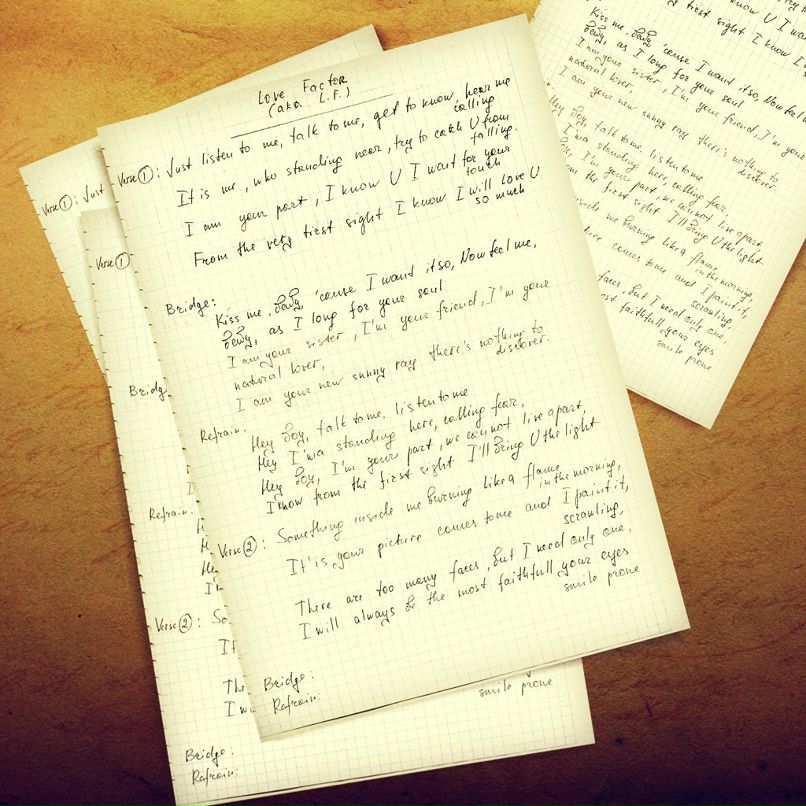 Love Factor
(aka. L.F.)
Verse ①: Just listen to me, talk to me, get to know, hear me
calling
It is me, who standing near, try to catch U from
falling.
I am your part, I know U I want for your
touch
From the very first sight I know I will love U
so much
Bridge:
Kiss me, baby 'cause I want it so, Now feel me,
baby, as I long for your soul
I am your sister, I'm your friend, I'm your
natural lover,
I am your new sunny ray there's nothing to
discover.
Refrain.
Hey boy, talk to me. listen to me
Hey I'm a standing here, calling fear,
Hey boy, I'm your part, we cannot live apart,
I know from the first sight I'll bring U the light
Verse ②: Something inside me burning like a flame
in the morning,
It is your picture comes to me and I paint it,
scrawling,
There are too many faces, but I need only one
I will always be the most faithfull, your eyes
smile prone
Bridge:
Refrain:
Verse ①: Just
Verse ①
Bridg
Refrain.
H
H
He
I
Verse ②: So
If
The
I w
smile prone
Bridge:
Refrain:
know U I want
very first sight I know I
Kiss me, baby 'cause I want it so, Now feel m
baby, as I long for your soul
I am your sister, I'm your friend, I'm your
natural lover,
I am your new sunny ray there's nothing to
discover.
Hey boy, talk to me, listen to me
I'm a standing here, calling fear,
boy, I'm your part, we cannot live apart,
from the first sight I'll bring U the light
inside me burning like a flame
in the morning,
picture comes to me and I paint it,
scrawling.
faces, but I need only one,
most faithfull, your eyes
smile prone